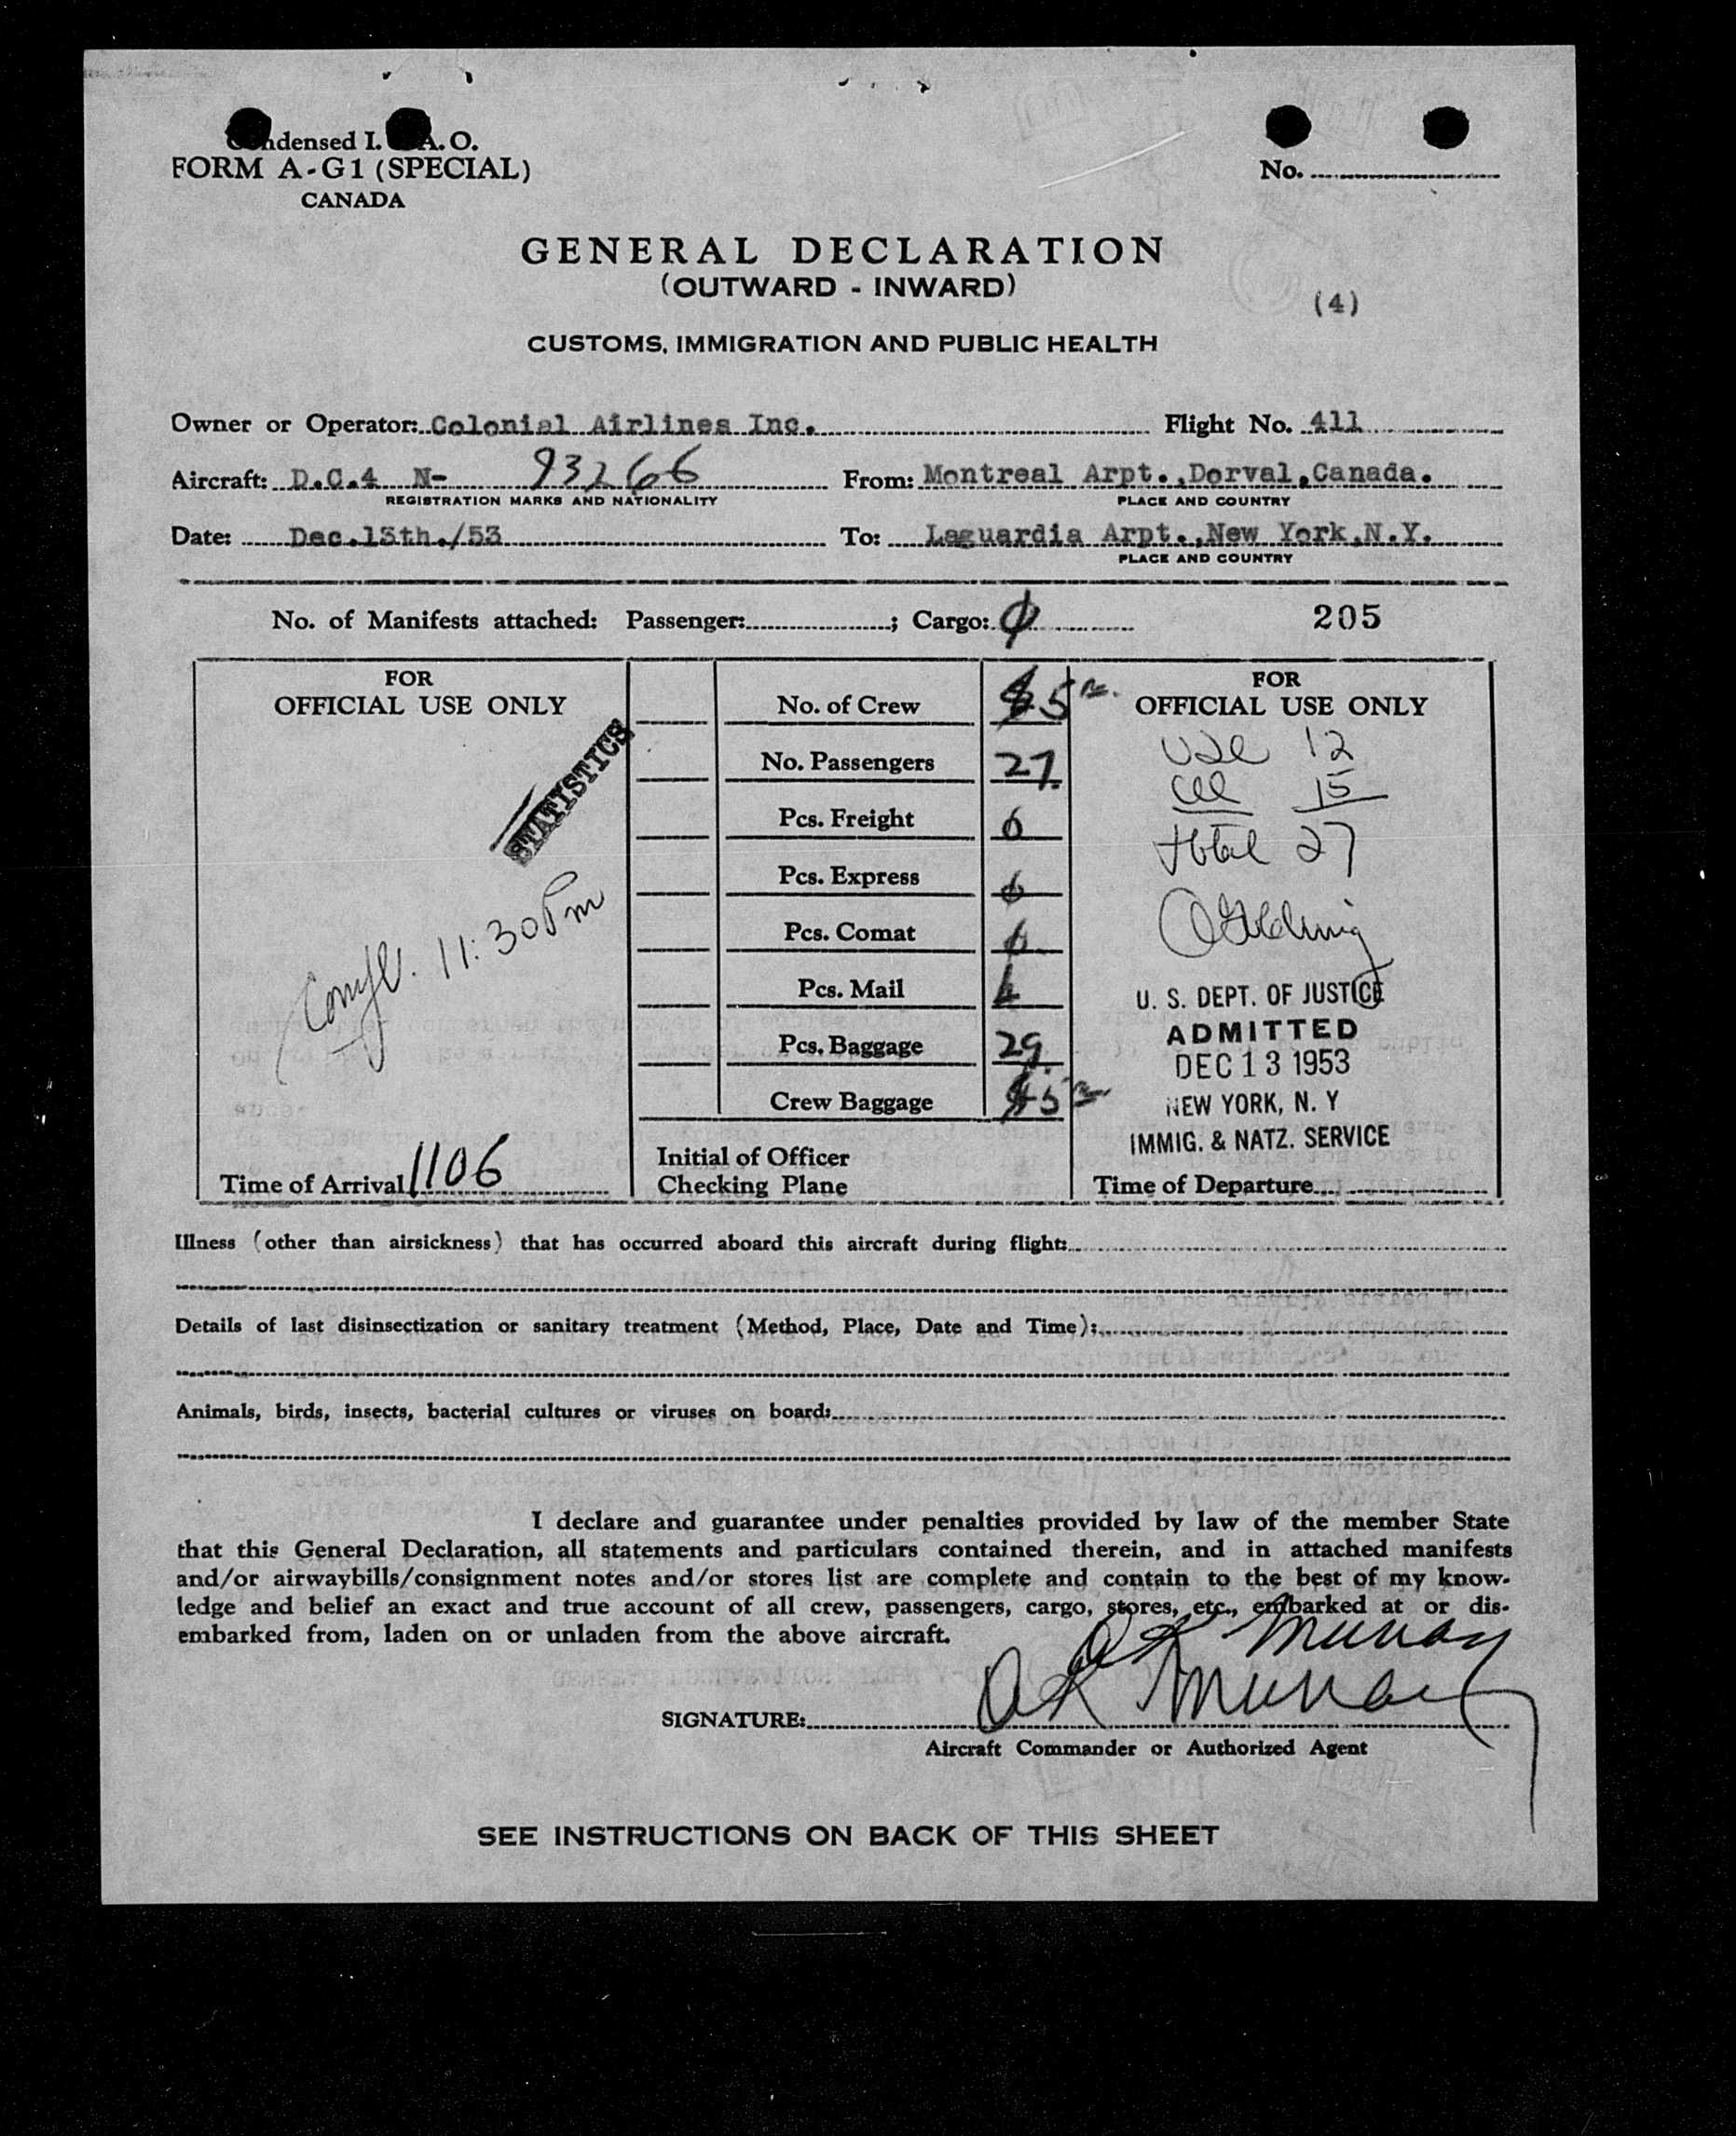 Condensed I. C. A. O.
FORM A-G1 (SPECIAL)
CANADA
No.
GENERAL DECLARATION
(OUTWARD - INWARD)
(4)
CUSTOMS, IMMIGRATION AND PUBLIC HEALTH
Owner or Operator: Colonial Airlines Inc. Flight No. 411
Aircraft: D.C.4 N- 93266 From: Montreal Arpt., Dorval, Canada.
REGISTRATION MARKS AND NATIONALITY PLACE AND COUNTRY
Date: Dec.13th./53 To: Laguardia Arpt., New York, N.Y.
PLACE AND COUNTRY
No. of Manifests attached: Passenger: ; Cargo: 0 205
FOR
OFFICIAL USE ONLY
STATISTICS
Compl. 11:30 Pm
Time of Arrival 1106
No. of Crew 5
No. Passengers 27
Pcs. Freight 0
Pcs. Express 0
Pcs. Comat 0
Pcs. Mail
Pcs. Baggage 29
Crew Baggage 5
Initial of Officer
Checking Plane
FOR
OFFICIAL USE ONLY
USC 12
15
total 27
U. S. DEPT. OF JUSTICE
ADMITTED
DEC 13 1953
NEW YORK, N. Y
IMMIG. & NATZ. SERVICE
Time of Departure
Illness (other than airsickness) that has occurred aboard this aircraft during flight:
Details of last disinsectization or sanitary treatment (Method, Place, Date and Time):
Animals, birds, insects, bacterial cultures or viruses on board:
I declare and guarantee under penalties provided by law of the member State
that this General Declaration, all statements and particulars contained therein, and in attached manifests
and/or airwaybills/consignment notes and/or stores list are complete and contain to the best of my know-
ledge and belief an exact and true account of all crew, passengers, cargo, stores, etc., embarked at or dis-
embarked from, laden on or unladen from the above aircraft.
Murray
SIGNATURE: Murray
Aircraft Commander or Authorized Agent
SEE INSTRUCTIONS ON BACK OF THIS SHEET